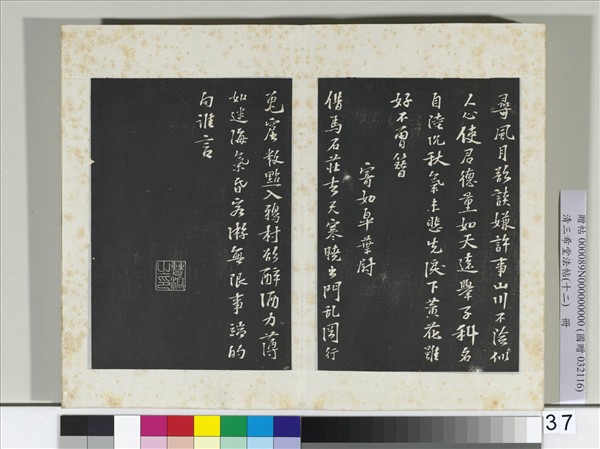 尋風月欲談嫌許事山川不險似
人心使君德量如天遠舉子科名
自陸沉秋氣未悲先淚下黃花雖
好不曾簪
寄如皐葉尉
借馬石莊去天寒曉出門亂岡行
兔窟數點入鴉村欲醉酒力薄
如迷海氣昏客游無限事端的
向誰言
贈帖 000089N000000000 (國贈 032116)
清三希堂法帖(十二) 冊
37